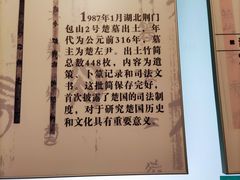 1987年1月湖北荆门
包山2号楚墓出土，年
代为公元前316年，墓
主为楚左尹。出土竹简
总数448枚，内容为遣
策、卜筮记录和司法文
书。这批简保存完好，
首次披露了楚国的司法制
度，对于研究楚国历史
和文化具有重要意义。